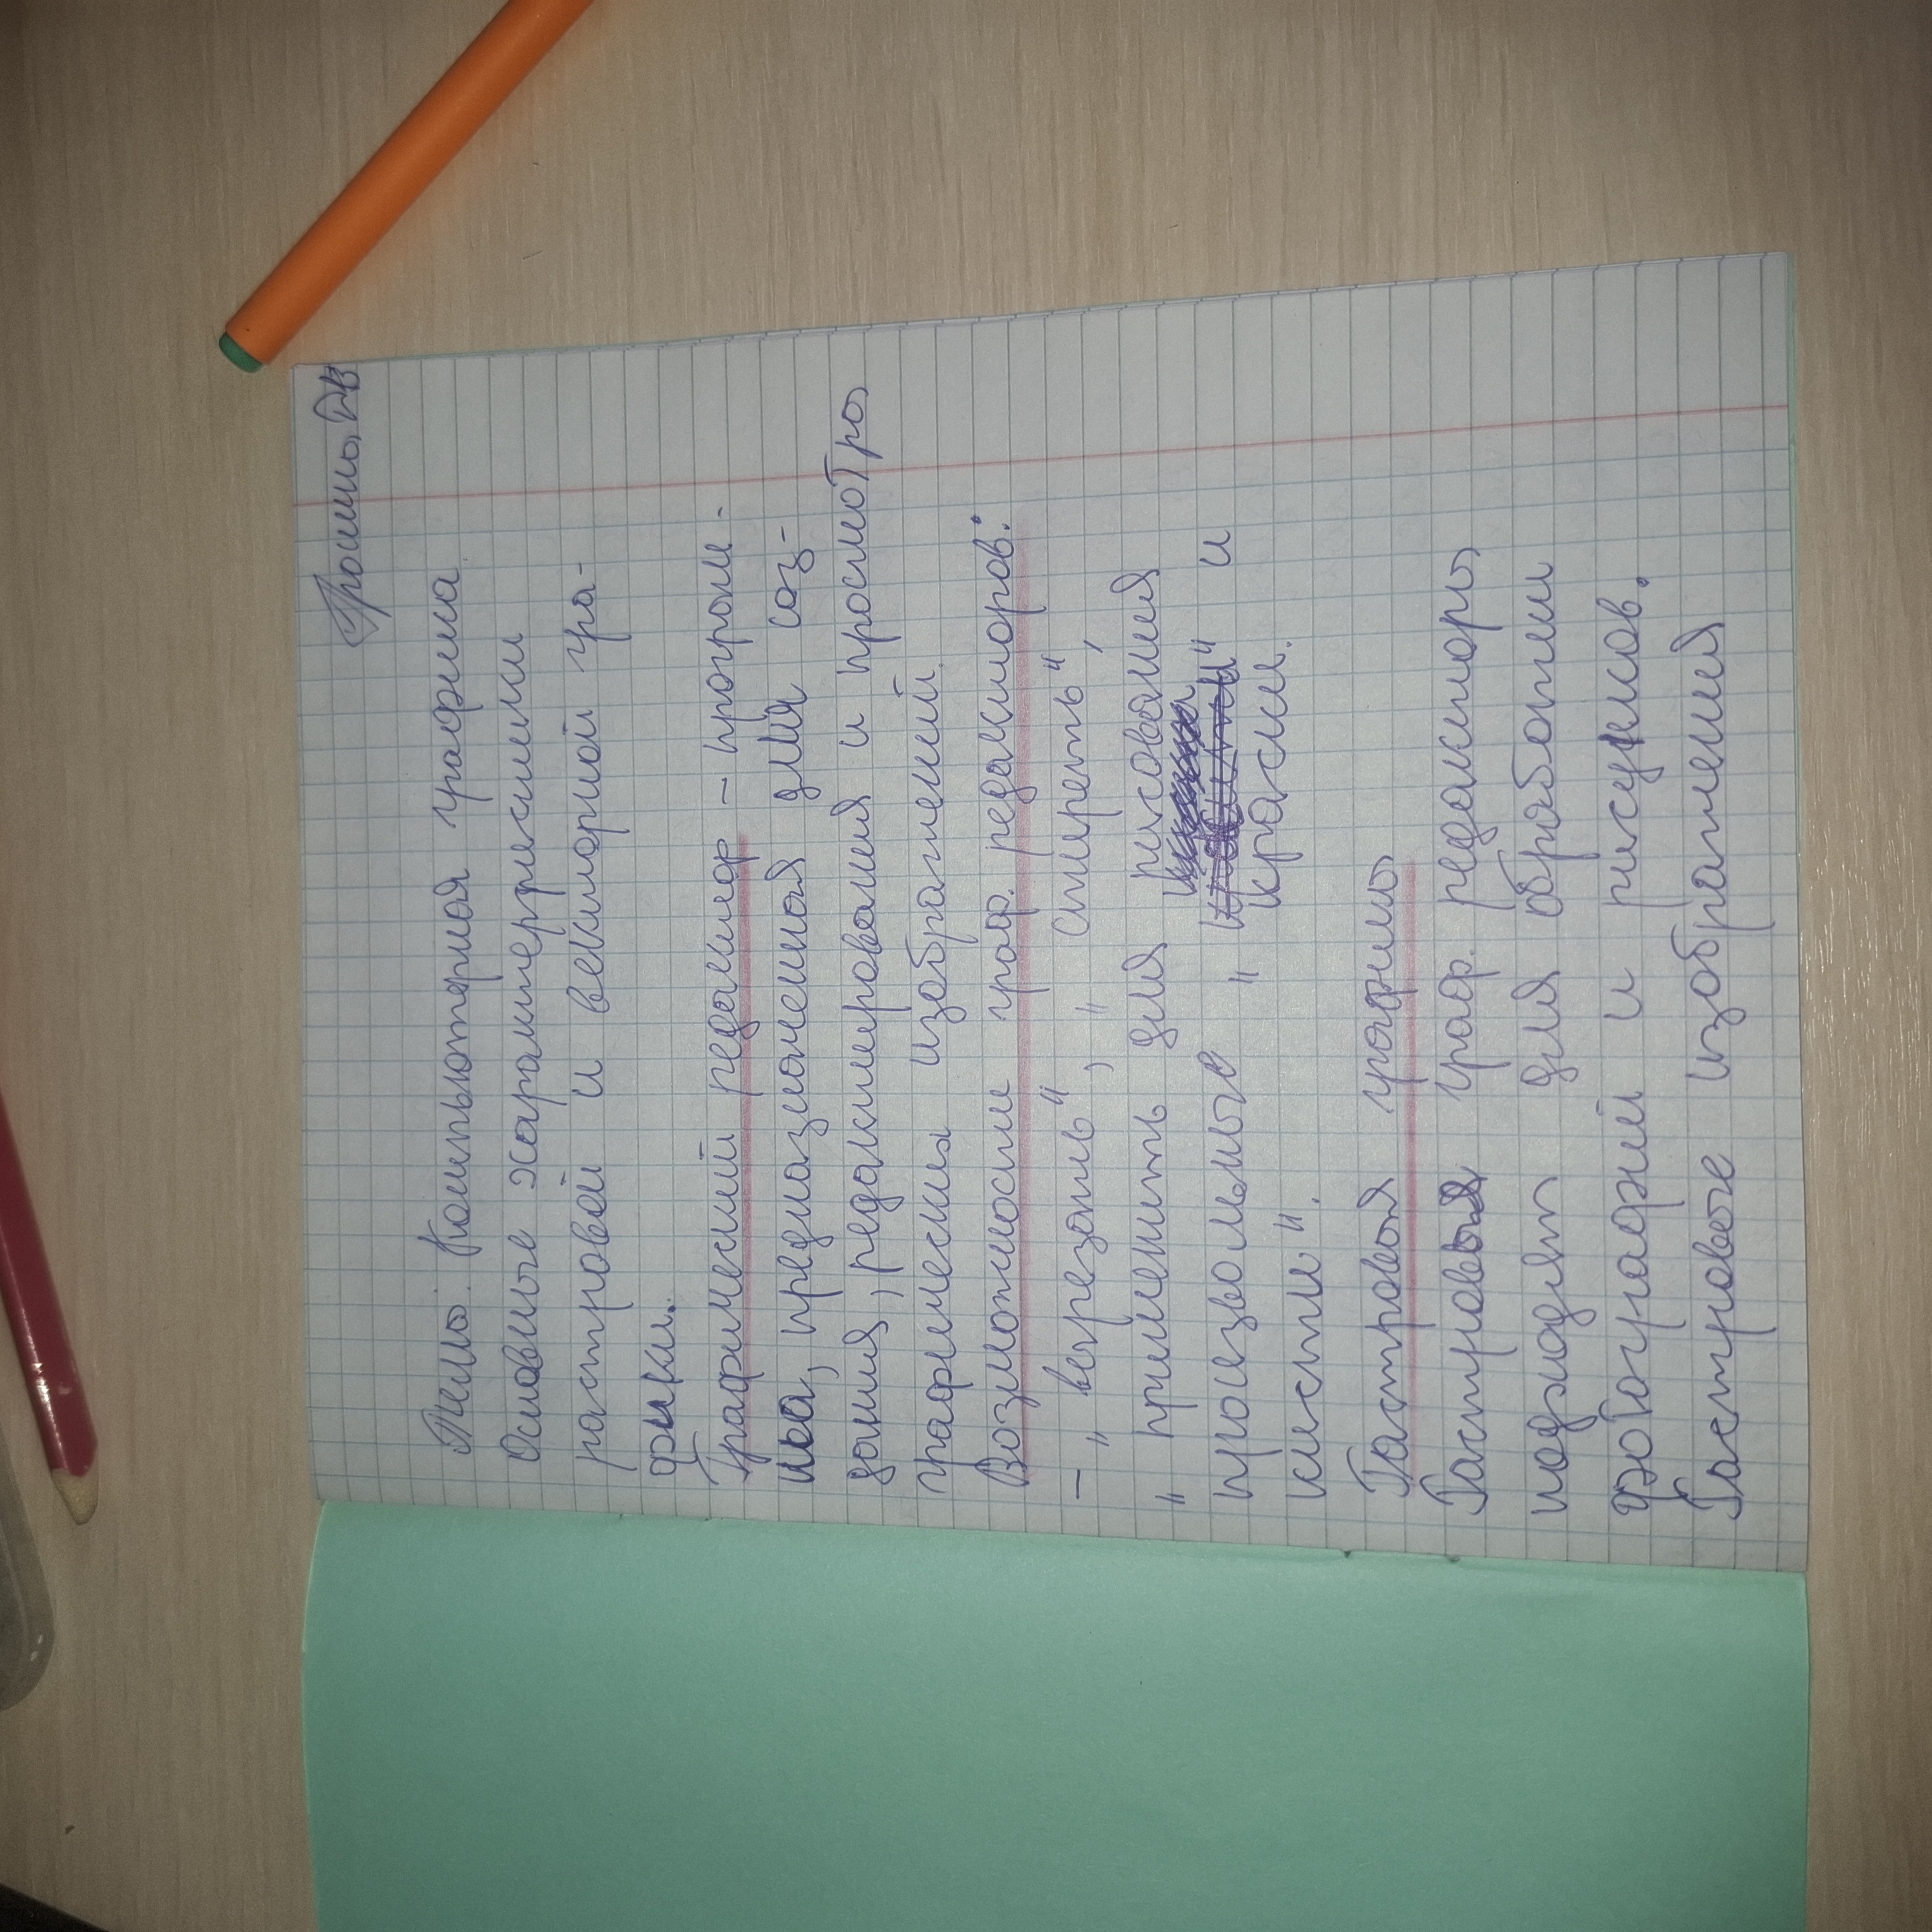 Тема: Компьютерная графика.
Основные характеристики
растровой и векторной гра-
фики.
Графический редактор – програм-
ма, предназначенная для соз-
дания, редактирования и просмотра
графических изображений.
Возможности граф. редакторов:
– „вырезать", „стереть",
„применить для рисования
произвольные „ " и
кисти". краски.
Растровая графика
Растровые граф. редакторы
подходят для обработки
фотографий и рисунков.
Растровые изображения